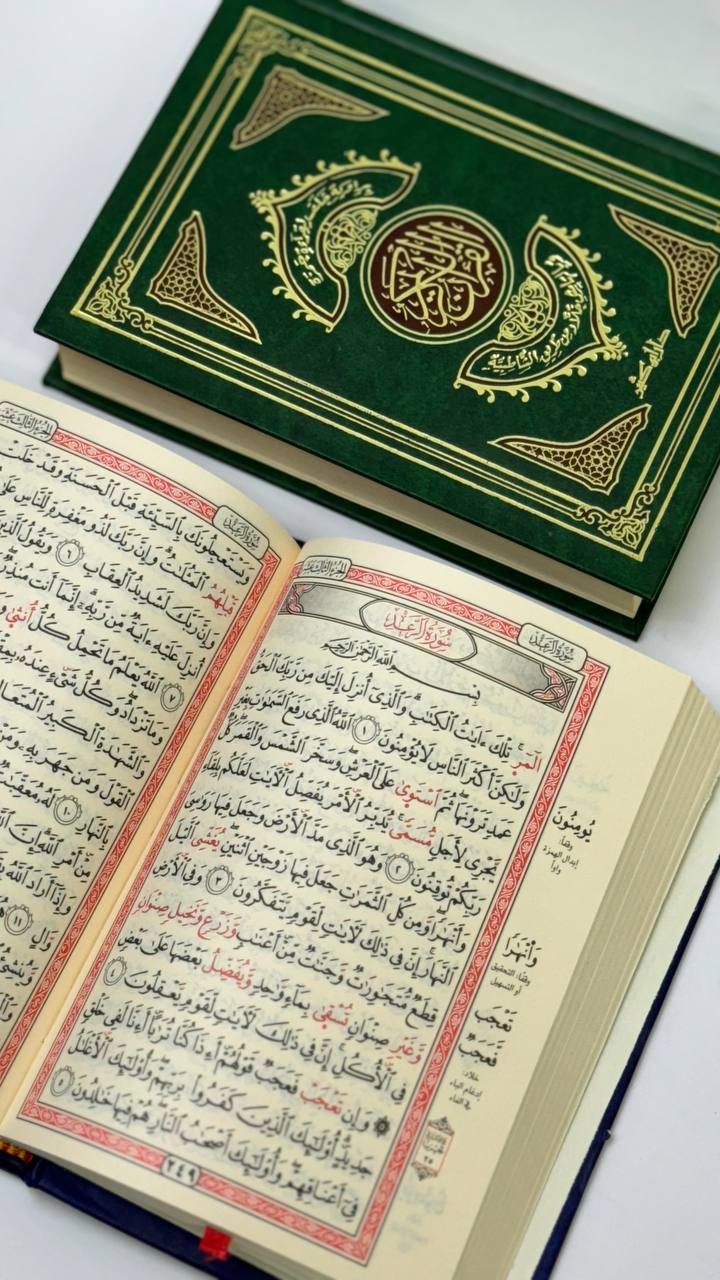 القرآن الكريم
من طريق الشاطبية
الجزء الثالث عشر
سُورَةُ الرَّعْدِ
سُورَةُ الرَّعْدِ
بِسْمِ اللَّهِ الرَّحْمَٰنِ الرَّحِيمِ
الٓمٓرۚ تِلْكَ ءَايَٰتُ ٱلْكِتَٰبِۗ وَٱلَّذِىٓ أُنزِلَ إِلَيْكَ مِن رَّبِّكَ ٱلْحَقُّ
وَلَٰكِنَّ أَكْثَرَ ٱلنَّاسِ لَا يُؤْمِنُونَ ١ ٱللَّهُ ٱلَّذِى رَفَعَ ٱلسَّمَٰوَٰتِ بِغَيْرِ
عَمَدٍ تَرَوْنَهَاۖ ثُمَّ ٱسْتَوَىٰ عَلَى ٱلْعَرْشِۖ وَسَخَّرَ ٱلشَّمْسَ وَٱلْقَمَرَۖ كُلٌّ
يَجْرِى لِأَجَلٍ مُّسَمًّىۚ يُدَبِّرُ ٱلْأَمْرَ يُفَصِّلُ ٱلْأَيَٰتِ لَعَلَّكُم بِلِقَآءِ
رَبِّكُمْ تُوقِنُونَ ٢ وَهُوَ ٱلَّذِى مَدَّ ٱلْأَرْضَ وَجَعَلَ فِيهَا رَوَٰسِىَ
وَأَنْهَٰرًاۖ وَمِن كُلِّ ٱلثَّمَرَٰتِ جَعَلَ فِيهَا زَوْجَيْنِ ٱثْنَيْنِۖ يُغَشِّى ٱلَّيْلَ
ٱلنَّهَارَۚ إِنَّ فِى ذَٰلِكَ لَأَيَٰتٍ لِّقَوْمٍ يَتَفَكَّرُونَ ٣ وَفِى ٱلْأَرْضِ
قِطَعٌ مُّتَجَٰوِرَٰتٌ وَجَنَّٰتٌ مِّنْ أَعْنَٰبٍ وَزَرْعٍ وَنَخِيلٍ صِنْوَانٍ
وَغَيْرِ صِنْوَانٍ تُسْقَىٰ بِمَآءٍ وَٰحِدٍ وَيُفَضِّلُ بَعْضَهَا عَلَىٰ بَعْضٍ
فِى ٱلْأُكُلِۚ إِنَّ فِى ذَٰلِكَ لَأَيَٰتٍ لِّقَوْمٍ يَعْقِلُونَ ٤
۞ وَإِن تَعْجَبْ فَعَجَبٌ قَوْلُهُمْ أَءِذَا كُنَّا تُرَٰبًا أَءِنَّا لَفِى خَلْقٍ
جَدِيدٍۗ أُو۟لَٰٓئِكَ ٱلَّذِينَ كَفَرُوا۟ بِرَبِّهِمْۖ وَأُو۟لَٰٓئِكَ ٱلْأَغْلَٰلُ
فِىٓ أَعْنَاقِهِمْۖ وَأُو۟لَٰٓئِكَ أَصْحَٰبُ ٱلنَّارِۖ هُمْ فِيهَا خَٰلِدُونَ ٥
يُومِنُونَ
وقفاً:
إبدال الهمزة
واواً
وَأَنْهَٰرًا
وقفاً: التحقيق
أو التسهيل
تَعْجَب
فَعَجَبٌ
خلاد:
إدغام الباء
في الفاء
٢٥
٢٤٩
الجزء الثالث عشر
سُورَةُ الرَّعْدِ
وَيَسْتَعْجِلُونَكَ بِٱلسَّيِّئَةِ قَبْلَ ٱلْحَسَنَةِ وَقَدْ خَلَتْ
قَبْلِهُمُ ٱلْمَثُلَٰتُۗ وَإِنَّ رَبَّكَ لَذُو مَغْفِرَةٍ لِّلنَّاسِ عَلَىٰ
وَإِنَّ رَبَّكَ لَشَدِيدُ ٱلْعِقَابِ ٦ وَيَقُولُ ٱلَّذِينَ
أُنزِلَ عَلَيْهِ ءَايَةٌ مِّن رَّبِّهِۦٓۗ إِنَّمَآ أَنتَ مُنذِرٌ
٧ ٱللَّهُ يَعْلَمُ مَا تَحْمِلُ كُلُّ أُنثَىٰ
وَمَا تَزْدَادُۖ وَكُلُّ شَىْءٍ عِندَهُۥ
وَٱلشَّهَٰدَةِ ٱلْكَبِيرُ ٱلْمُتَعَالِ
ٱلْقَوْلَ وَمَن جَهَرَ بِهِۦ وَمَنْ
بِٱلنَّهَارِ ١٠ لَهُۥ مُعَقِّبَٰتٌ
مِنْ أَمْرِ ٱللَّهِۗ إِنَّ
وَإِذَآ أَرَادَ ٱللَّهُ
وَالٍ ١١
وَيُنشِئُ